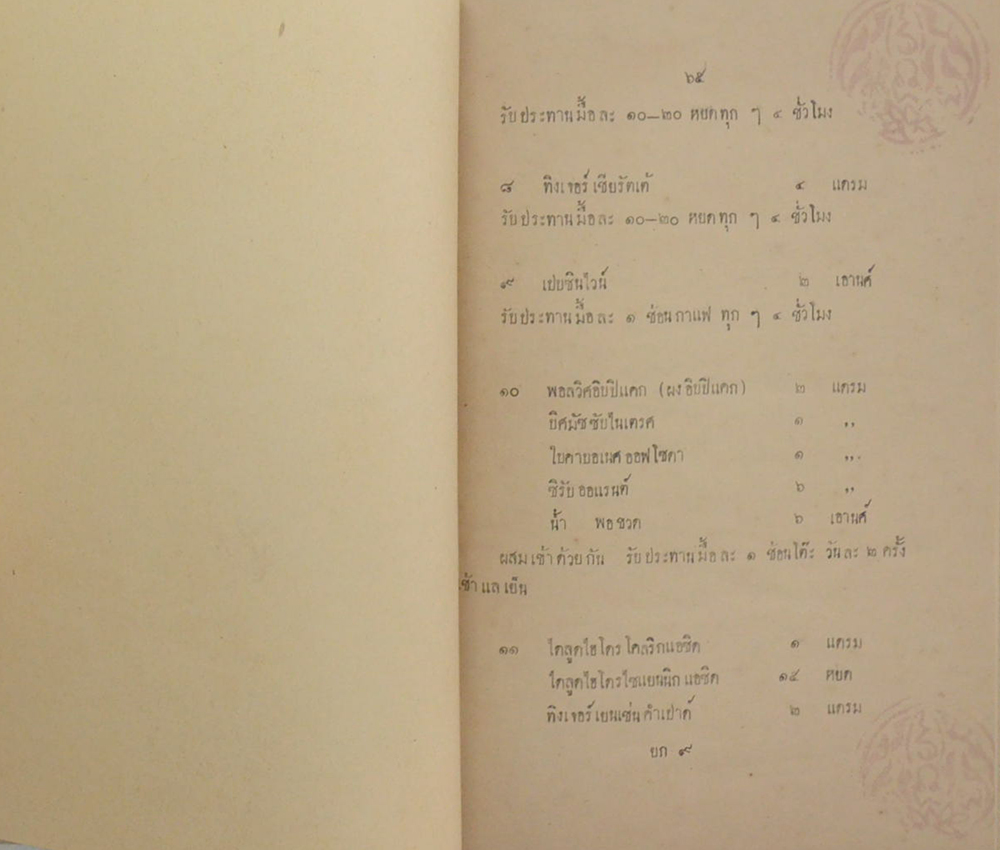 ๖๕
รับประทานมื้อละ ๑๐—๒๐ หยดทุก ๆ ๔ ชั่วโมง
๘ ทิงเจอร์เซียรัดเต้ ๔ แดรม
รับประทานมื้อละ ๑๐—๒๐ หยดทุก ๆ ๔ ชั่วโมง
๙ เปปซินไวน์ ๒ เอานศ์
รับประทานมื้อละ ๑ ช้อนกาแฟ ทุก ๆ ๔ ชั่วโมง
๑๐ พอลวิศอิบปิแคก (ผงอิบปิแคก) ๒ แดรม
บิศมัซซับไนเตรศ ๑ ,,
ไบคาบอเนศออฟโซดา ๑ ,,
ซิรับออแรนต์ ๖ ,,
น้ำ พอขวด ๖ เอานศ์
ผสมเข้าด้วยกัน รับประทานมื้อละ ๑ ช้อนโต๊ะ วันละ ๒ ครั้ง
เช้าแลเย็น
๑๑ ไดลูดไฮโดรโคลริกแอซิด ๑ แดรม
ไดลูดไฮโดรไซแยนนิกแอซิด ๑๕ หยด
ทิงเจอร์เยนเซ่นคำเปาด์ ๒ แดรม
ยก ๙